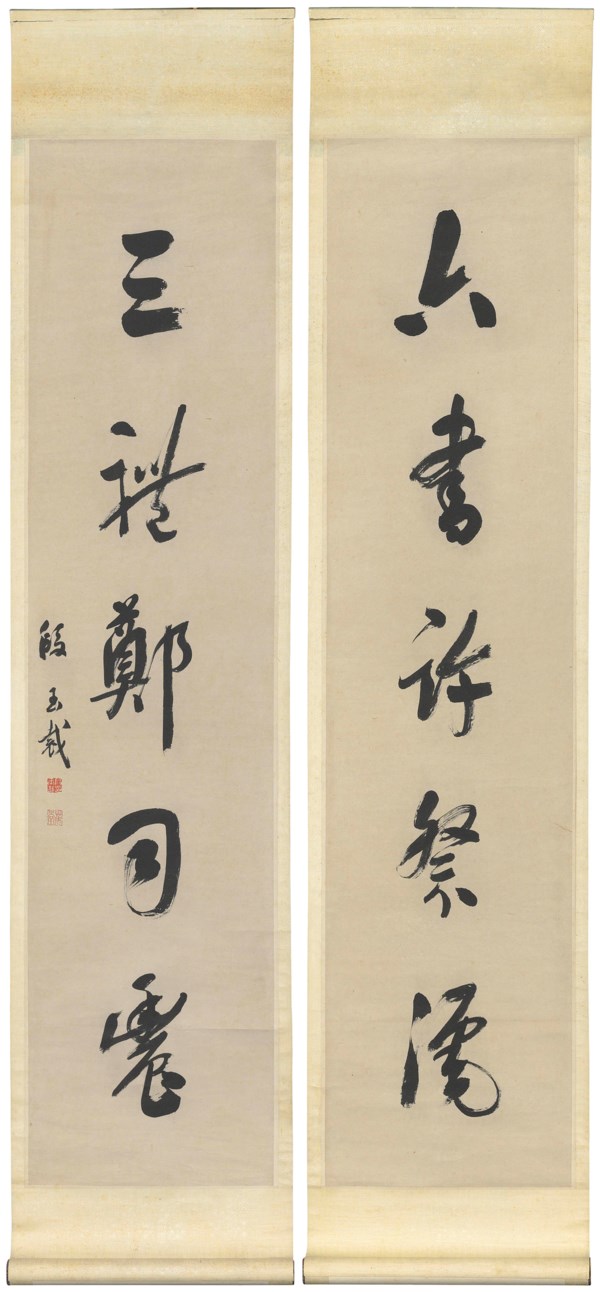 六書許祭酒
三禮鄭司農
段玉裁